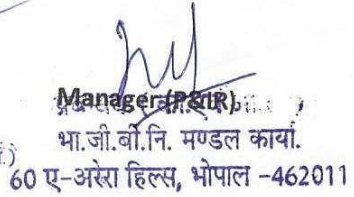 Manager (P&IR)
भा.जी.बी.नि. मण्डल कार्या.
60 ए-अरेरा हिल्स, भोपाल -462011